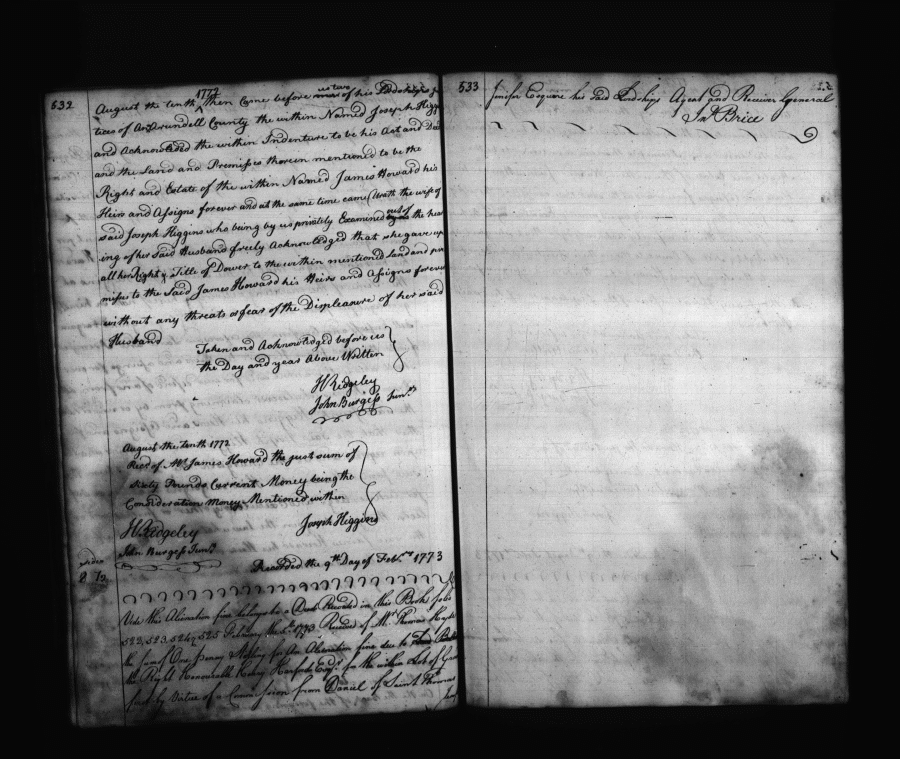 532
August the tenth 1772 then Came before us two of his Lordships
tices of Ann Arundell County the within Named Joseph Higg
and Acknowledged the within Indenture to be his Act and Deed
and the Land and Premisses therein mentioned to be the
Right and Estate of the within Named James Howard his
Heirs and Assigns forever and at the same time came the wife of
said Joseph Higgins who being by us privately Examined out of the hea
ing of her Said Husband freely Acknowledged that she gave up
all her Right & Title of Dower to the within mentioned Land and pre
misses to the Said James Howard his Heirs and Assigns forever
without any threats or fear of the Displeasure of her said
Husband
Taken and Acknowledged before us
the Day and year Above Written
H Ridgeley
John Burgess Junr
August the tenth 1772
Recd of Mr James Howard the just sum of
Sixty Pounds Current Money being the
Consideration Money Mentioned within
H. Ridgeley
Joseph Higgins
John Burgess Junr
Recorded the 9th Day of Febry 1773
Vide this Alienation fine belongs to a Deed Recorded in this Book folio
522, 523, 524, 525 February 1773 Received of Mr Thomas
the sum of One penny Sterling for An Alienation fine due to
the Right Honourable Henry Harford Esqr for the within
by Virtue of a Commission from Daniel of Saint Thomas
Jen
533
Jenifer Esquire his said Lordships Agent and Receiver General
Jno Brice